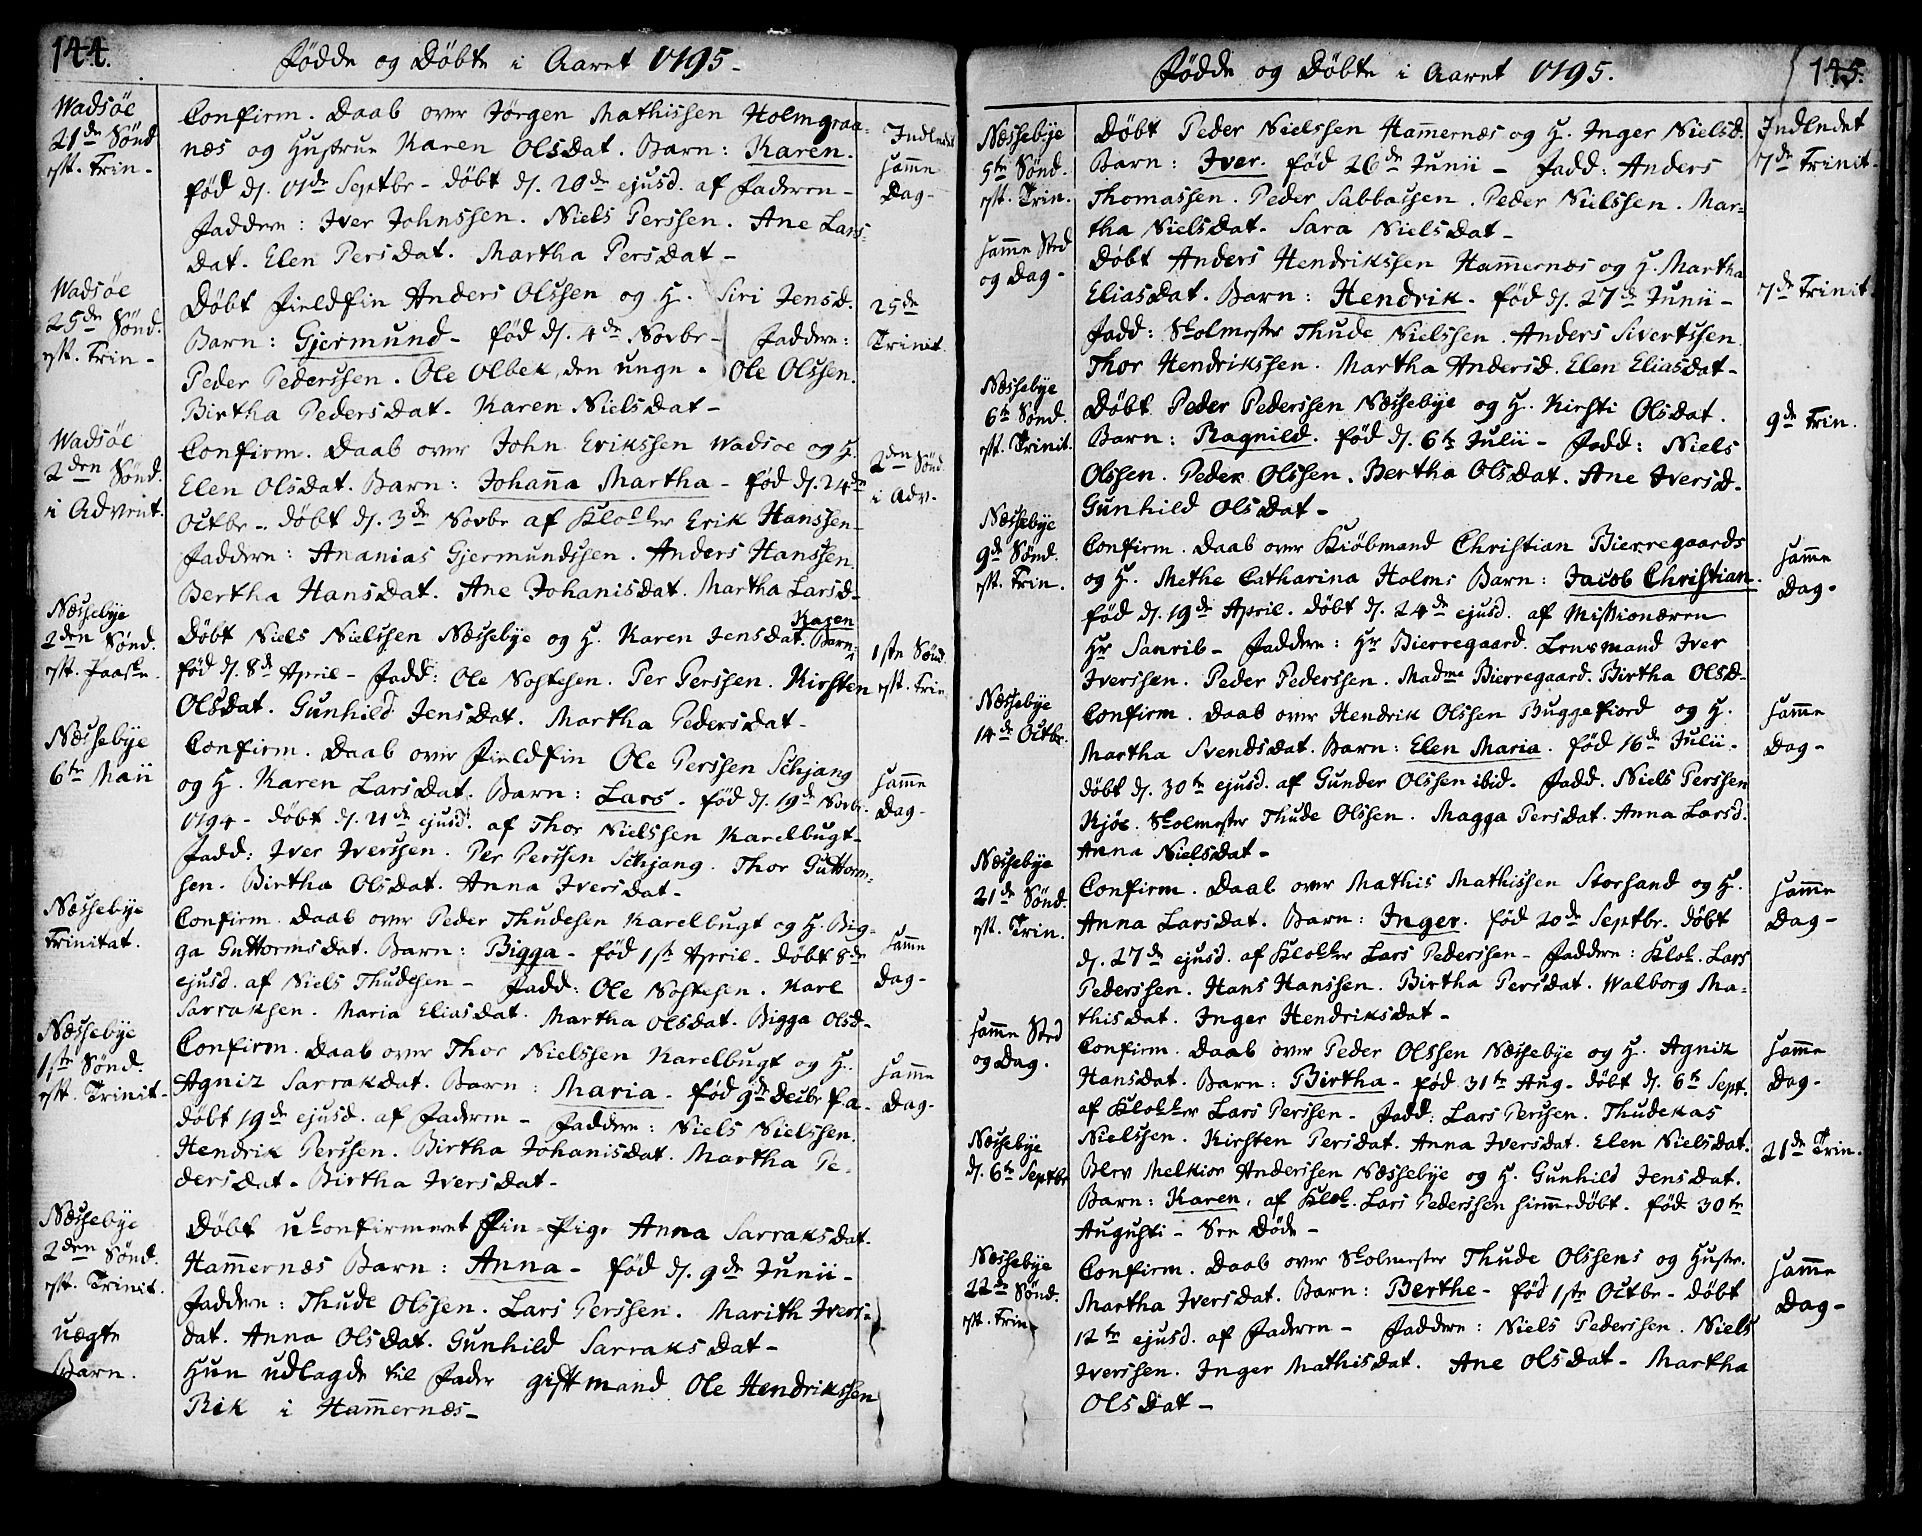 144.
Fødde og Døbte i Aaret 1795 -
Wadsøe
21de Sønd
eft. Trin -
Confirm. Daab over Jørgen Mathissen Holmgraa-
næs og Hustrue Karen Olsdat. Barn: Karen.
fød d. 17de Septbr - døbt d. 20de ejusd. af Faderen -
Faddere: Iver Johnssen. Niels Perssen. Ane Lars-
dat. Elen Persdat. Martha Persdat -
Indledet
samme
Dag -
Wadsøe
25de Sønd.
eft. Trin -
Døbt Fieldfin Anders Olssen og H. Siri Jensd.
Barn: Gjermund - fød d. 4de Novbr - Faddere:
Peder Pederssen. Ole Olbek den unge. Ole Olssen.
Birtha Pedersdat - Karen Nielsdat -
25de
Trinit
Wadsøe
2den Sønd.
i Advent.
Confirm. Daab over John Erikssen Wadsøe og H.
Elen Olsdat. Barn: Johanna Martha - fød d. 24de
Octbr - døbt d. 3de Novbr af Klokker Erik Hanssen -
Faddere: Ananias Gjermundssen. Anders Hanssen.
Bertha Hansdat. Ane Johanisdat. Martha Larsd -
2den Sønd.
i Adv -
Næssebye
2den Sønd.
eft. Paaske.
Døbt Niels Nielssen Næssebye og H. Karen Jensdat. Barn: Karen
fød d. 8de April - Fadd: Ole Nostesen. Per Perssen. Kirsten
Olsdat. Gunhild Jensdat. Martha Pedersdat -
1ste Sønd.
eft. Trin
Næssebye
6te Maii
Confirm. Daab over Fieldfin Ole Perssen Schjang
og H. Karen Larsdat. Barn: Lars - fød d. 19de Novb.
1794 - døbt d. 21de ejusd. af Thor Nielssen Karelbugt -
Fadd: Iver Iverssen. Per Perssen Schjang. Thor Guttorm-
sen. Birtha Olsdat. Anna Iversdat -
samme
Dag -
Næssebye
Trinitat.
Confirm. Daab over Peder Thudesen Karelbugt og H. Big-
ga Guttormsdat. Barn: Bigga - fød 1ste April - døbt 8de
ejusd. af Niels Thudesen - Fadd: Ole Nostesen. Karl
Sarraksen. Maria Eliasdat. Martha Olsdat. Bigga Olsd -
samme
Dag -
Næssebye
1ste Sønd.
eft. Trinit -
Confirm. Daab over Thor Nielssen Karelbugt og H.
Agniz Sarrakdat. Barn: Maria - fød 9de Decbr f. a -
døbt 19de ejusd. af Faderen - Faddere: Niels Nielssen.
Hendrik Perssen. Birtha Johanisdat. Martha Pe-
dersdat - Birtha Iversdat -
samme
Dag -
Næssebye
2den Sønd.
eft. Trinit.
uægte
Barn.
Døbt uconfirmeret Fin-Pige Anna Sarraksdat.
Hammernæs Barn: Anna - fød d. 9de Junii -
Faddere: Thude Olssen. Lars Perssen. Marith Ivers-
dat. Anna Olsdat. Gunhild Sarraksdat -
Hun udlagde til Fader gift mand Ole Hendrikssen
Rik i Hammernæs -
Fødde og Døbte i Aaret 1795.
145.
Næssebye
5te Sønd.
eft. Trin.
Døbt Peder Nielssen Hammernæs og H. Inger Nielsd.
Barn: Iver. fød 26de Junii - Fadd: Anders
Thomassen. Peder Sabbassen. Peder Nielssen. Mar-
tha Nielsdat - Sara Nielsdat -
Indledet
7de Trinit -
samme Sted
og Dag -
Døbt Anders Hendrikssen Hammernæs og H. Martha
Eliasdat. Barn: Hendrik - fød d. 27de Junii -
Fadd: Skolmester Thude Nielssen. Anders Sivertssen
Thor Hendrikssen. Martha Andersd. Elen Eliasdat -
7de Trinit
Næssebye
6te Sønd.
eft. Trinit.
Døbt Peder Pederssen Næssebye og H. Kirsti Olsdat.
Barn: Ragnild. fød d. 6te Julii - Fadd: Niels
Olssen. Peder Olssen. Bertha Olsdat. Ane Iversd -
Gunhild Olsdat -
9de Trin.
Næssebye
9de Sønd.
eft. Trin.
Confirm. Daab over Kiøbmand Christian Bierregaards
og H. Methe Catharina Holms Barn: Jacob Christian.
fød d. 19de April. døbt d. 24de ejusd. af Missionæren
Hr Sanrib - Faddere: Hr Bierregaard. Lensmand Iver
Iverssen. Peder Pederssen. Madme Bierregaard. Birtha Olsd -
samme
Dag -
Næssebye
14de Octbr.
Confirm. Daab over Hendrik Olssen Buggefiord og H.
Martha Svendsdat. Barn: Elen Maria. fød 16de Julii -
døbt d. 30te ejusd. af Gunder Olssen ibid - Fadd. Niels Perssen
Kjøe. Skolmester Thude Olssen. Magga Persdat. Anna Larsd.
Anna Nielsdat -
samme
Dag -
Næssebye
21de Sønd.
eft. Trin.
Confirm. Daab over Mathis Mathissen Storsand og H.
Anna Larsdat. Barn: Inger. fød 20de Septbr. døbt
d. 27de ejusd. af Klokker Lars Pederssen - Faddere: Klok. Lars
Pederssen. Hans Hanssen. Birtha Persdat. Walborg Ma-
thisdat. Inger Hendriksdat -
samme
Dag -
samme Sted
og Dag.
Confirm. Daab over Peder Olssen Næssebye og H. Agniz
Hansdat. Barn: Birtha - fød 31te Aug - døbt d. 6te Sept.
af Klokker Lars Perssen - Fadd: Lars Perssen. Thudekas
Nielssen. Kirsten Persdat. Anna Iversdat. Elen Nielsdat.
samme
Dag -
Næssebye
d. 6te Septbr
Blev Melkior Anderssen Næssebye og H. Gunhild Jensdat.
Barn: Karen, af Klok. Lars Pederssen hiemmedøbt. fød 30te
Augusti - See Døde -
21de Trin.
Næssebye
22de Sønd.
eft. Trin -
Confirm. Daab over Skolmester Thude Olssens og Hustr.
Martha Iversdat. Barn: Berthe - fød 1ste Octbr - døbt
12te ejusd. af Faderen - Faddere: Niels Pederssen. Niels
Iverssen. Inger Mathisdat. Ane Olsdat - Martha
Olsdat -
samme
Dag -